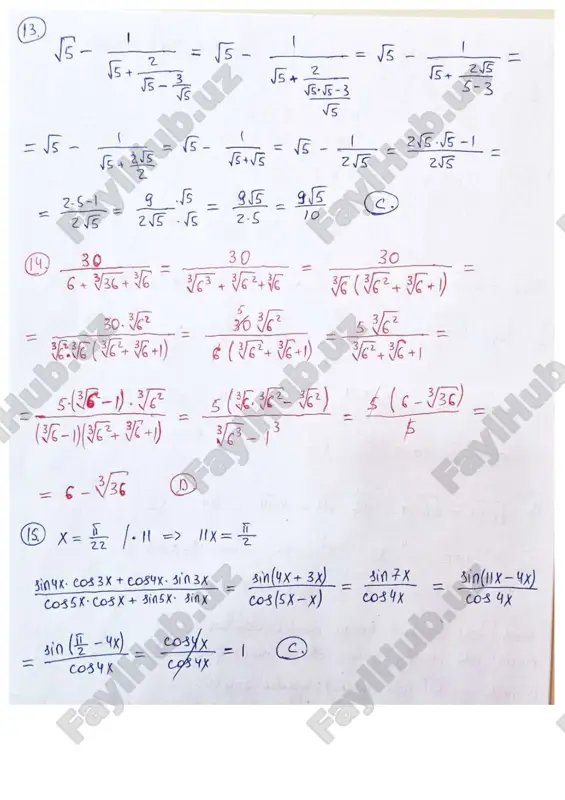 13.
√5 - 1/(√5 + 2/(√5 - 3/√5)) = √5 - 1/(√5 + 2/((√5·√5-3)/√5)) = √5 - 1/(√5 + 2√5/(5-3)) =
= √5 - 1/(√5 + 2√5/2) = √5 - 1/(√5+√5) = √5 - 1/(2√5) = (2√5·√5-1)/(2√5) =
= (2·5-1)/(2√5) = 9/(2√5) ·√5/·√5 = 9√5/(2·5) = 9√5/10 C.
14. 30/(6 + ∛36 + ∛6) = 30/(∛6³ + ∛6² + ∛6) = 30/(∛6 (∛6² + ∛6 + 1)) =
= 30·∛6²/(∛6²·∛6 (∛6² + ∛6 + 1)) = 5 30 ∛6²/(6 (∛6² + ∛6 + 1)) = 5 ∛6²/(∛6² + ∛6 + 1) =
= 5·(∛6 - 1)·∛6²/((∛6-1)(∛6² + ∛6 + 1)) = 5 (∛6·∛6² - ∛6²)/(∛6³ - 1³) = 5 (6 - ∛36)/5 =
= 6 - ∛36 D
15. x = π/22 /·11 => 11x = π/2
(sin4x·cos3x + cos4x·sin3x)/(cos5x·cosx + sin5x·sinx) = sin(4x + 3x)/cos(5x - x) = sin7x/cos4x = sin(11x - 4x)/cos4x
= sin(π/2 - 4x)/cos4x = cos4x/cos4x = 1 C.
FaylHub.uz
FaylHub.uz
FaylHub.uz
FaylHub.uz
FaylHub.uz
FaylHub.uz